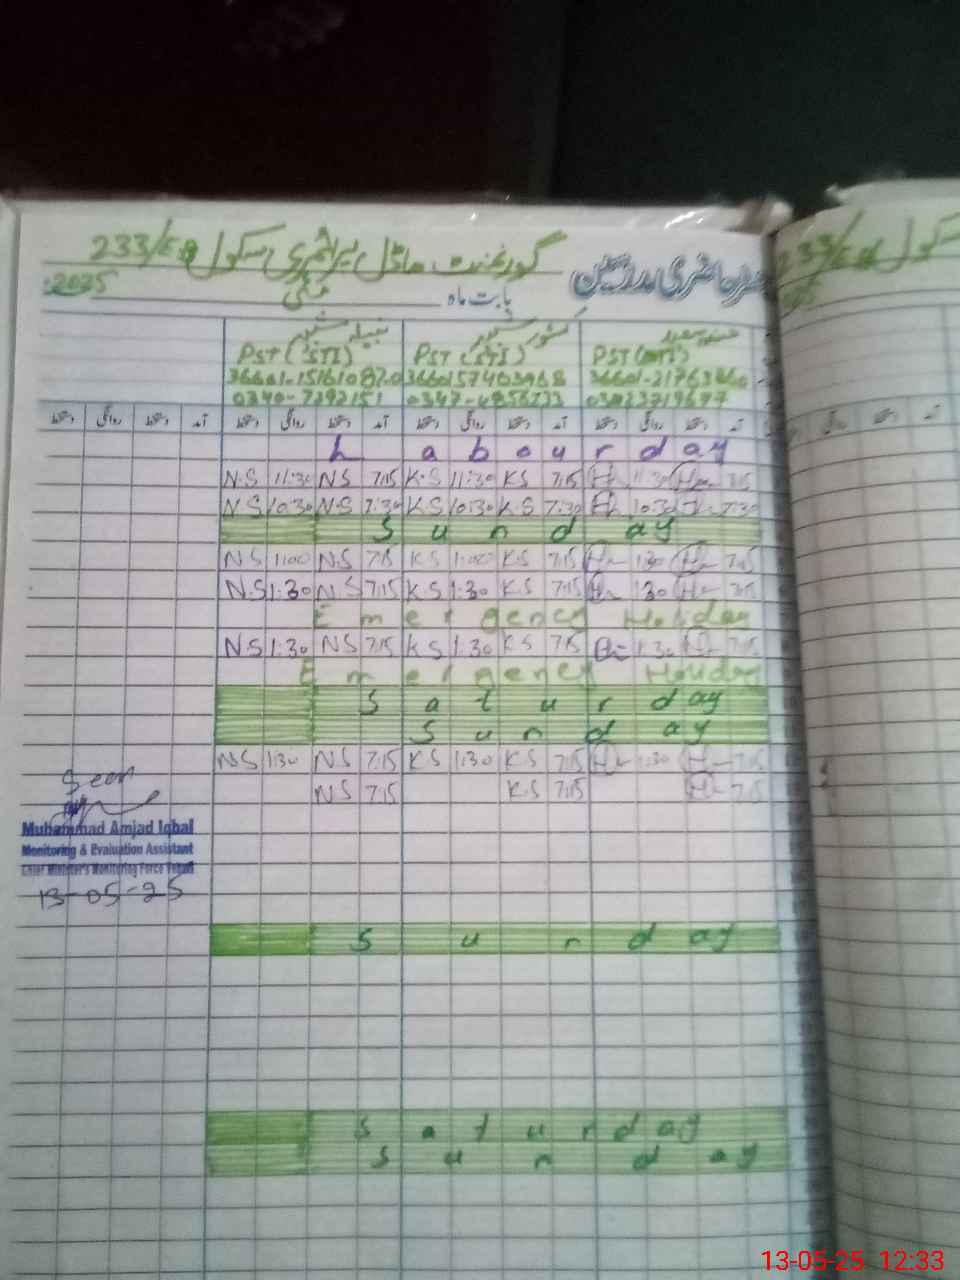 گورنمنٹ ماڈل پرائمری سکول 233/EB
رجسٹر حاضری مدرسین
بابت ماہ مئی 2025
PST (STI) PST (STI) PST
0340-7292151
آمد دستخط روانگی دستخط آمد دستخط روانگی دستخط آمد دستخط روانگی دستخط آمد دستخط روانگی دستخط
Labour day
N.S 11:30 NS 7:15 K.S 11:30 KS 7:15 11:30 7:15
N.S 10:30 N.S 7:30 K.S 10:30 K.S 7:30 10:30 7:30
Sunday
N.S 1:00 N.S 7:15 K.S 1:00 K.S 7:15 1:30 7:15
N.S 1:30 N.S 7:15 K.S 1:30 K.S 7:15 1:30 7:15
Emergency Holiday
N.S 1:30 N.S 7:15 K.S 1:30 K.S 7:15 1:30 7:15
Emergency Holiday
Saturday
Sunday
N.S 1:30 N.S 7:15 K.S 1:30 K.S 7:15 1:30 7:15
N.S 7:15 K.S 7:15 7:15
Seen
Muhammad Amjad Iqbal
Monitoring & Evaluation Assistant
Chief Minister's Monitoring Force Vehari
13-05-25
Sunday
Saturday
Sunday
13-05-25 12:33